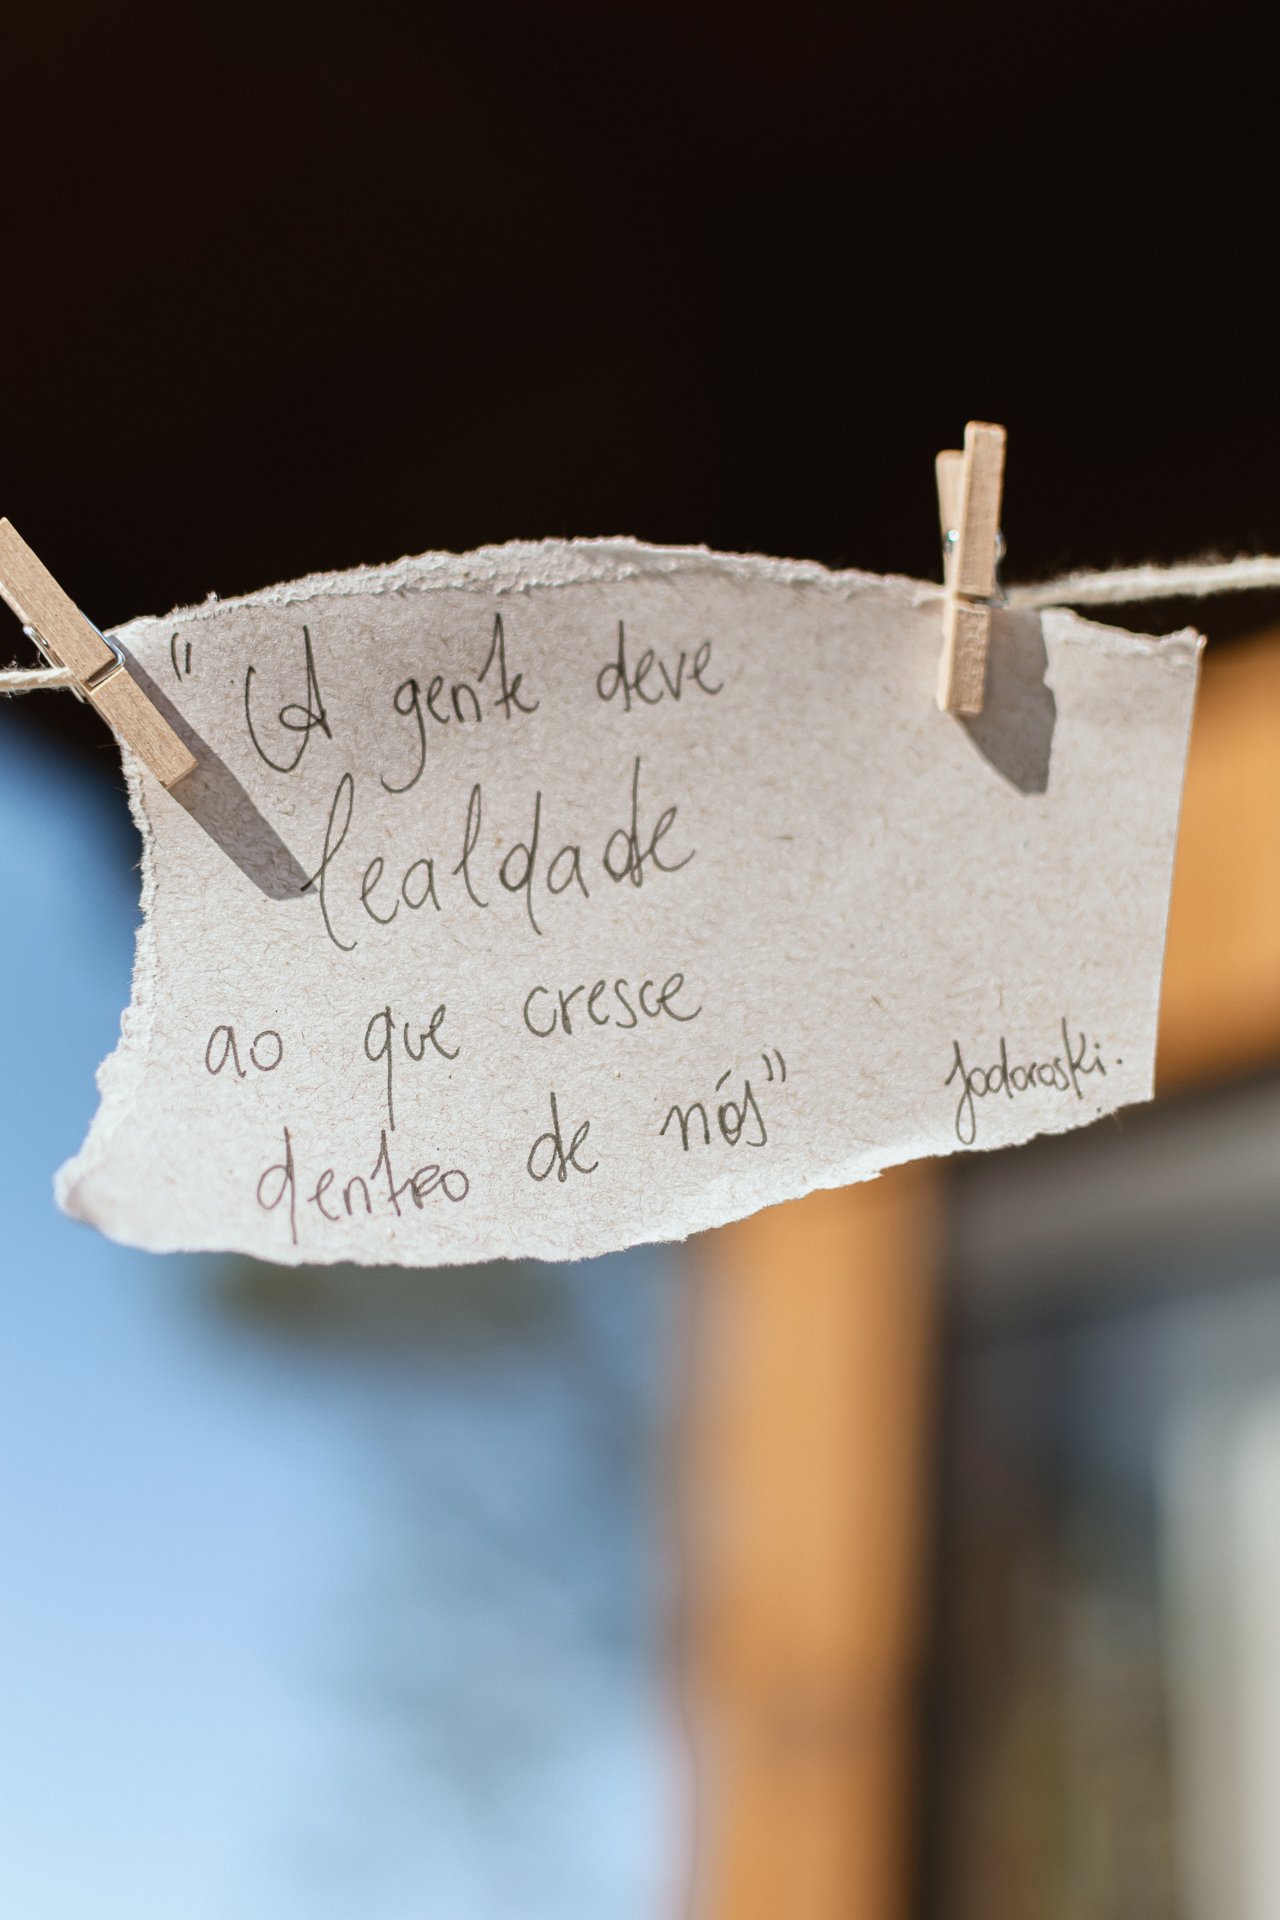 "A gente deve
lealdade
ao que cresce
dentro de nós"
Jodoroski.